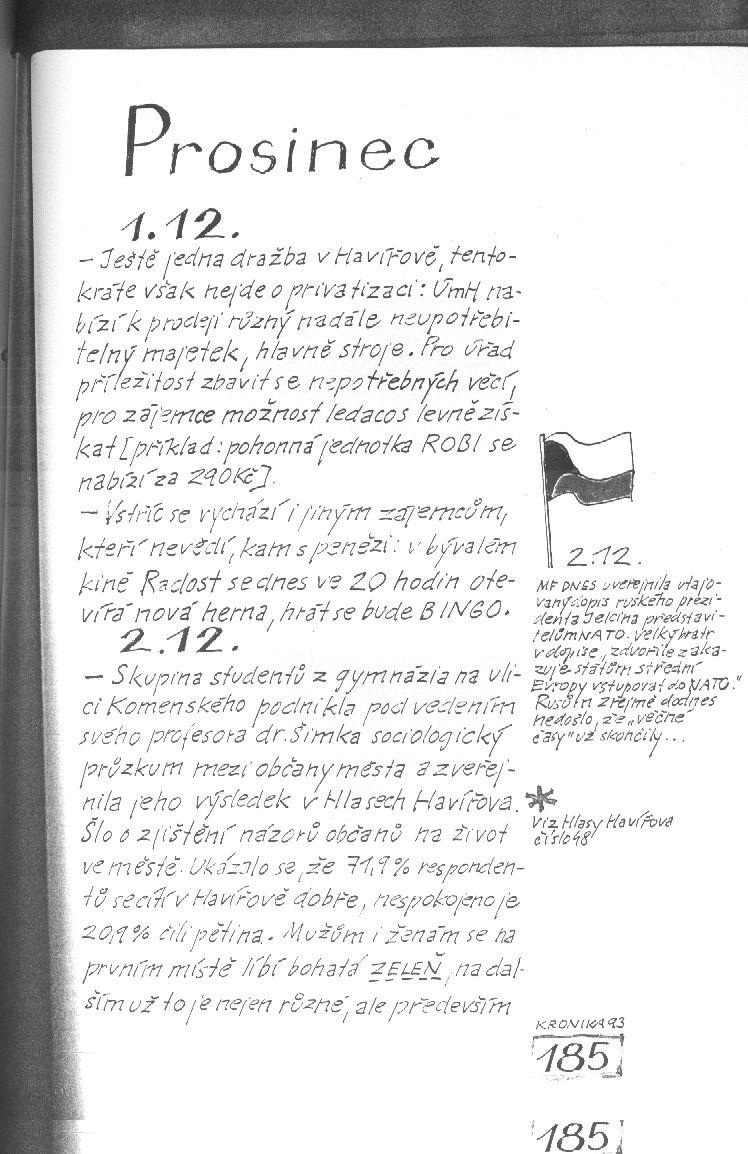 Prosinec
1.12.
– Ještě jedna dražba v Havířově, tento-
kráte však nejde o privatizaci: ÚmH na-
bízí k prodeji různý nadále neupotřebi-
telný majetek, hlavně stroje. Pro úřad
příležitost zbavit se nepotřebných věcí,
pro zájemce možnost ledacos levně zís-
kat [příklad: pohonná jednotka ROBI se
nabízí za 290Kč].
– Vstříc se vychází i jiným zájemcům,
kteří nevědí, kam s penězi: v bývalém
kině Radost se dnes ve 20 hodin ote-
vírá nová herna, hrát se bude BINGO.
2.12.
– Skupina studentů z gymnázia na uli-
ci Komenského podnikla pod vedením
svého profesora dr. Šimka sociologický
průzkum mezi občany města a zveřej-
nila jeho výsledek v Hlasech Havířova.
Šlo o zjištění názorů občanů na život
ve městě. Ukázalo se, že 71,9% responden-
tů se cítí v Havířově dobře, nespokojeno je
20,9% čili pětina. Mužům i ženám se na
prvním místě líbí bohatá ZELEŇ, na dal-
ším už to je nejen různé, ale především
2.12.
MF DNES uveřejnila utajo-
vaný dopis ruského prezi-
denta Jelcina představi-
telům NATO. Velký bratr
v dopise „zdvořile zaka-
zuje státům střední
Evropy vstupovat do NATO."
Rusům zřejmě dodnes
nedošlo, že „věčné
časy" už skončily...
*
Viz Hlasy Havířova
číslo 48
KRONIKA 93
185
185